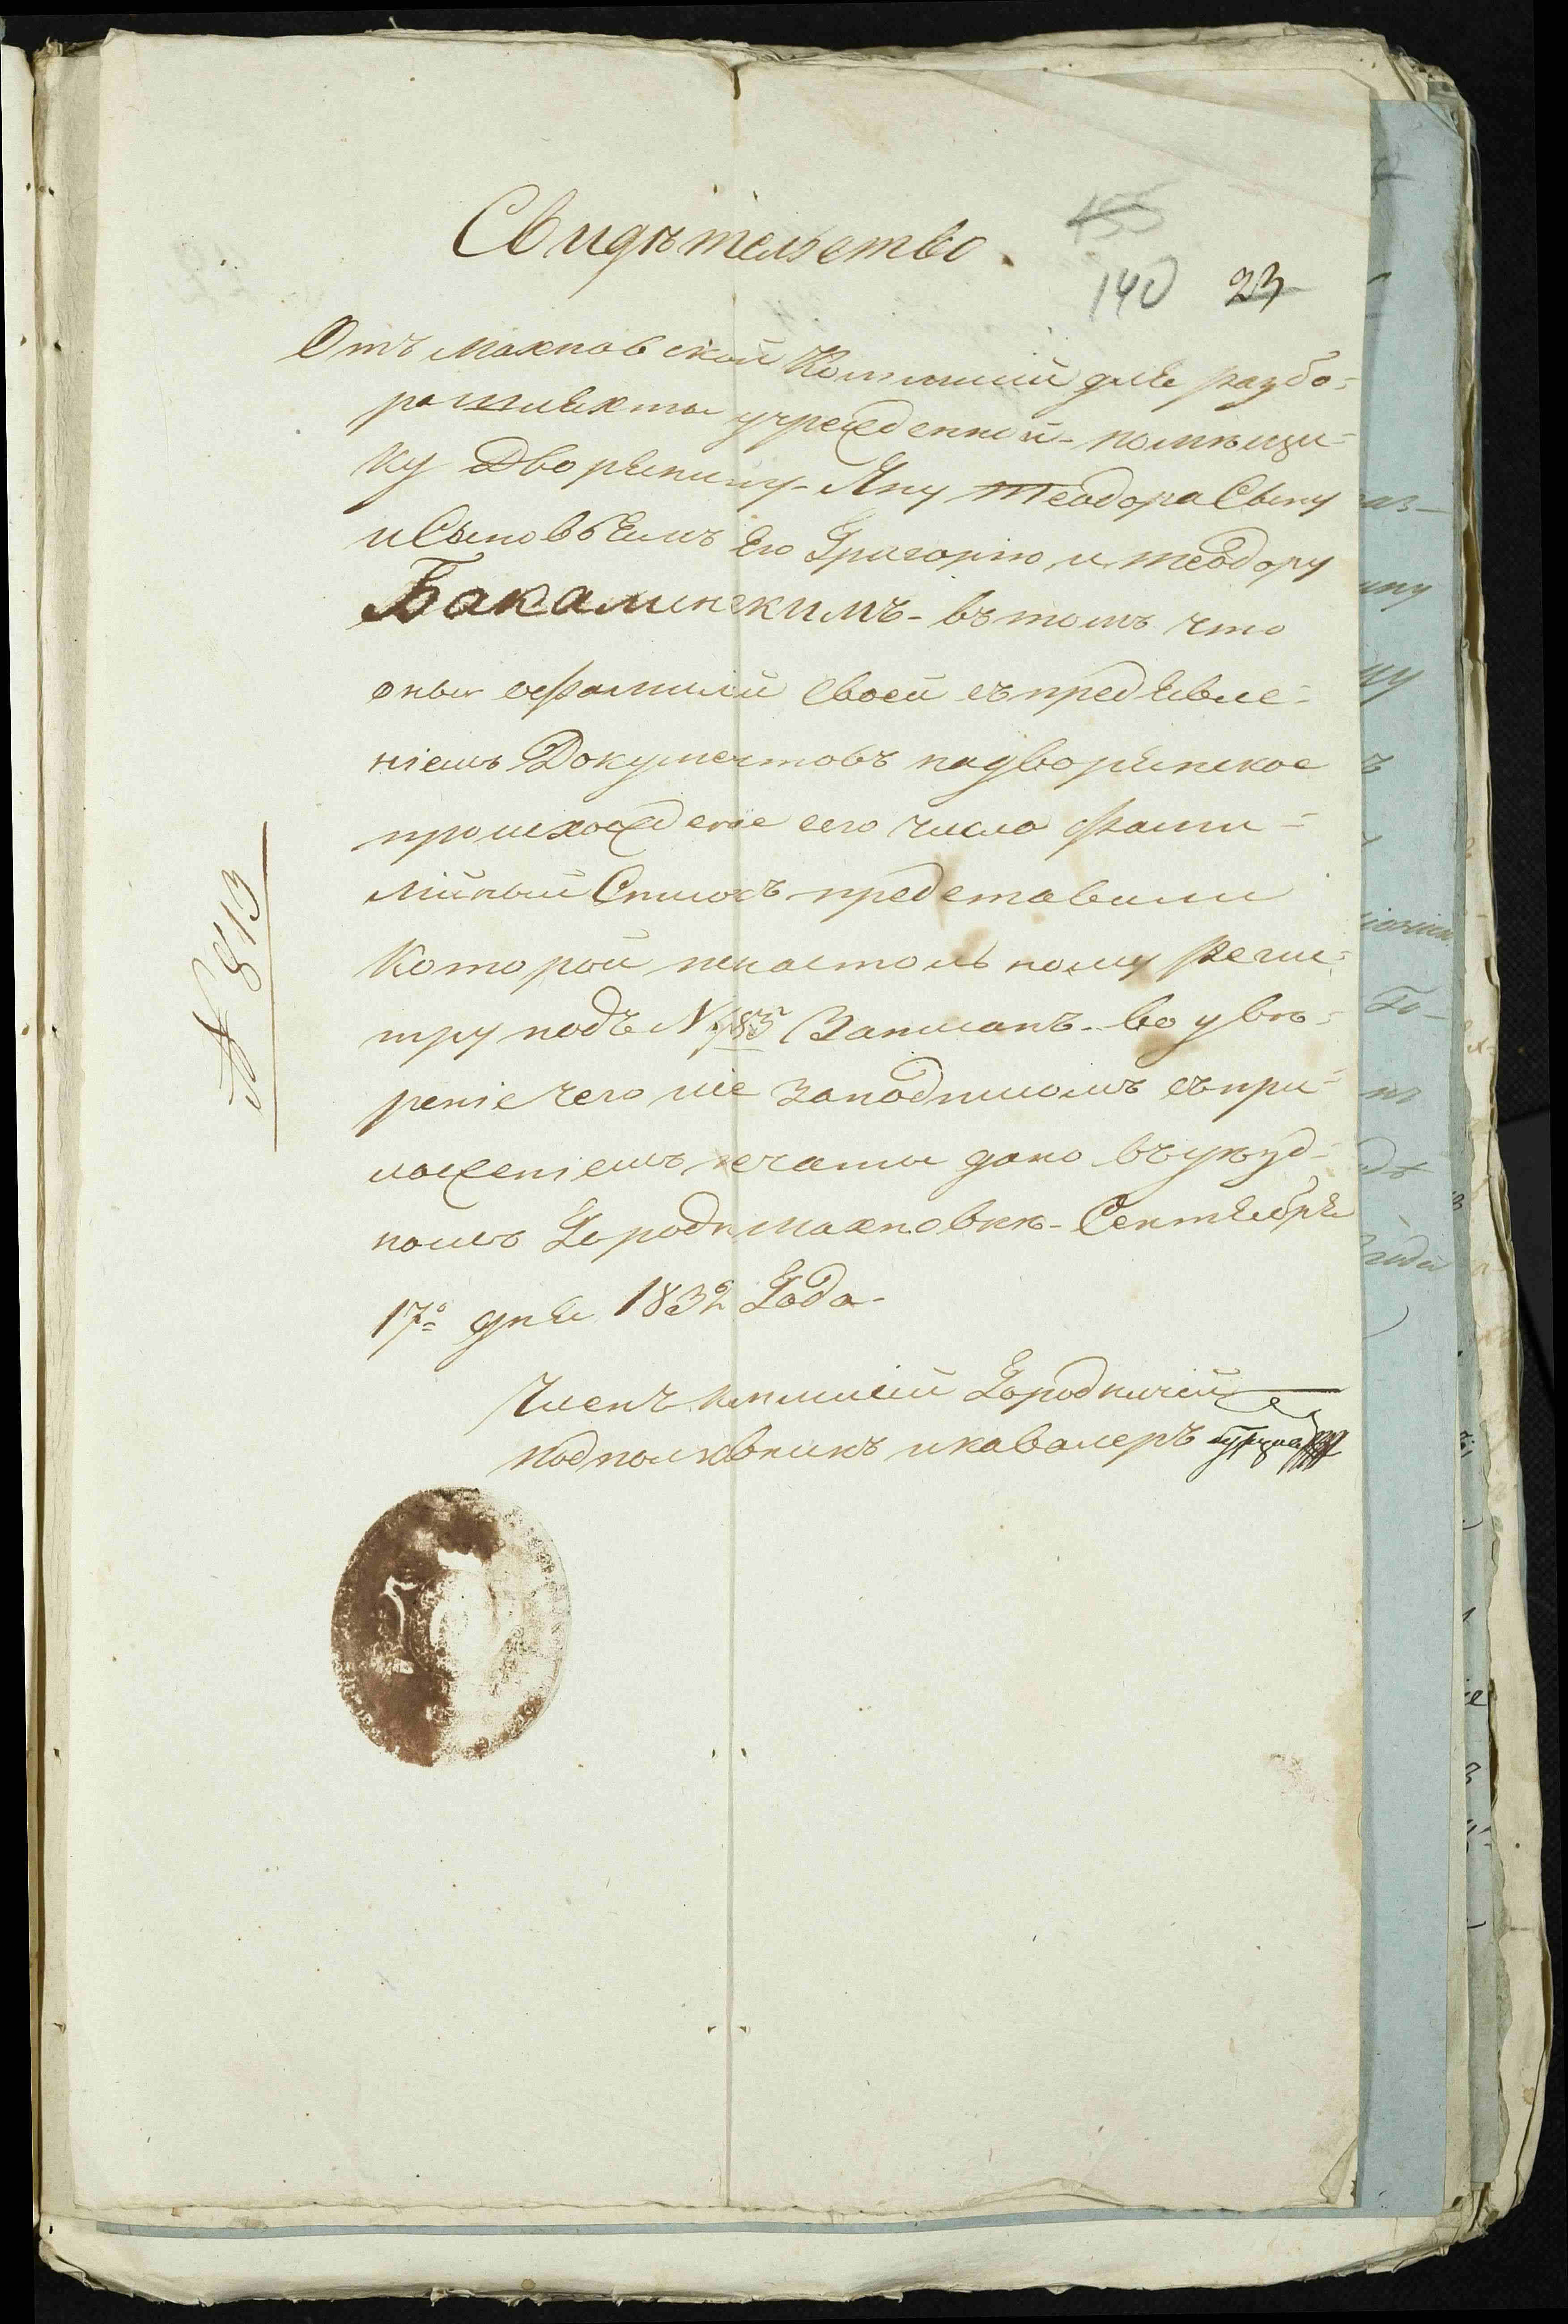 Свидѣтельство.
155
140 23
Отъ Махновской Коммисіи для разбо=
ра шляхты учрежденной - помѣщи=
ку Дворянину - Яну Теодора Сыну
и Сыновьямъ Его Григорію и Теодору
Бакаминскимъ - въ томъ что
оные о фамиліи Своей съ предъявле=
ніемъ Документовъ на дворянское
происхожденіе сего числа фами=
лійный Списокъ представили
Которой по настольному Реги=
тру подъ № 783 Записанъ - во увѣ=
реніе чего сіе За подписомъ съ при=
ложеніемъ печати дано въ уѣзд=
номъ Городѣ Махновкѣ - Сентября
17º дня 1832 Года -
Членъ Коммисіи Городничій
подполковникъ и кавалеръ
№ 813